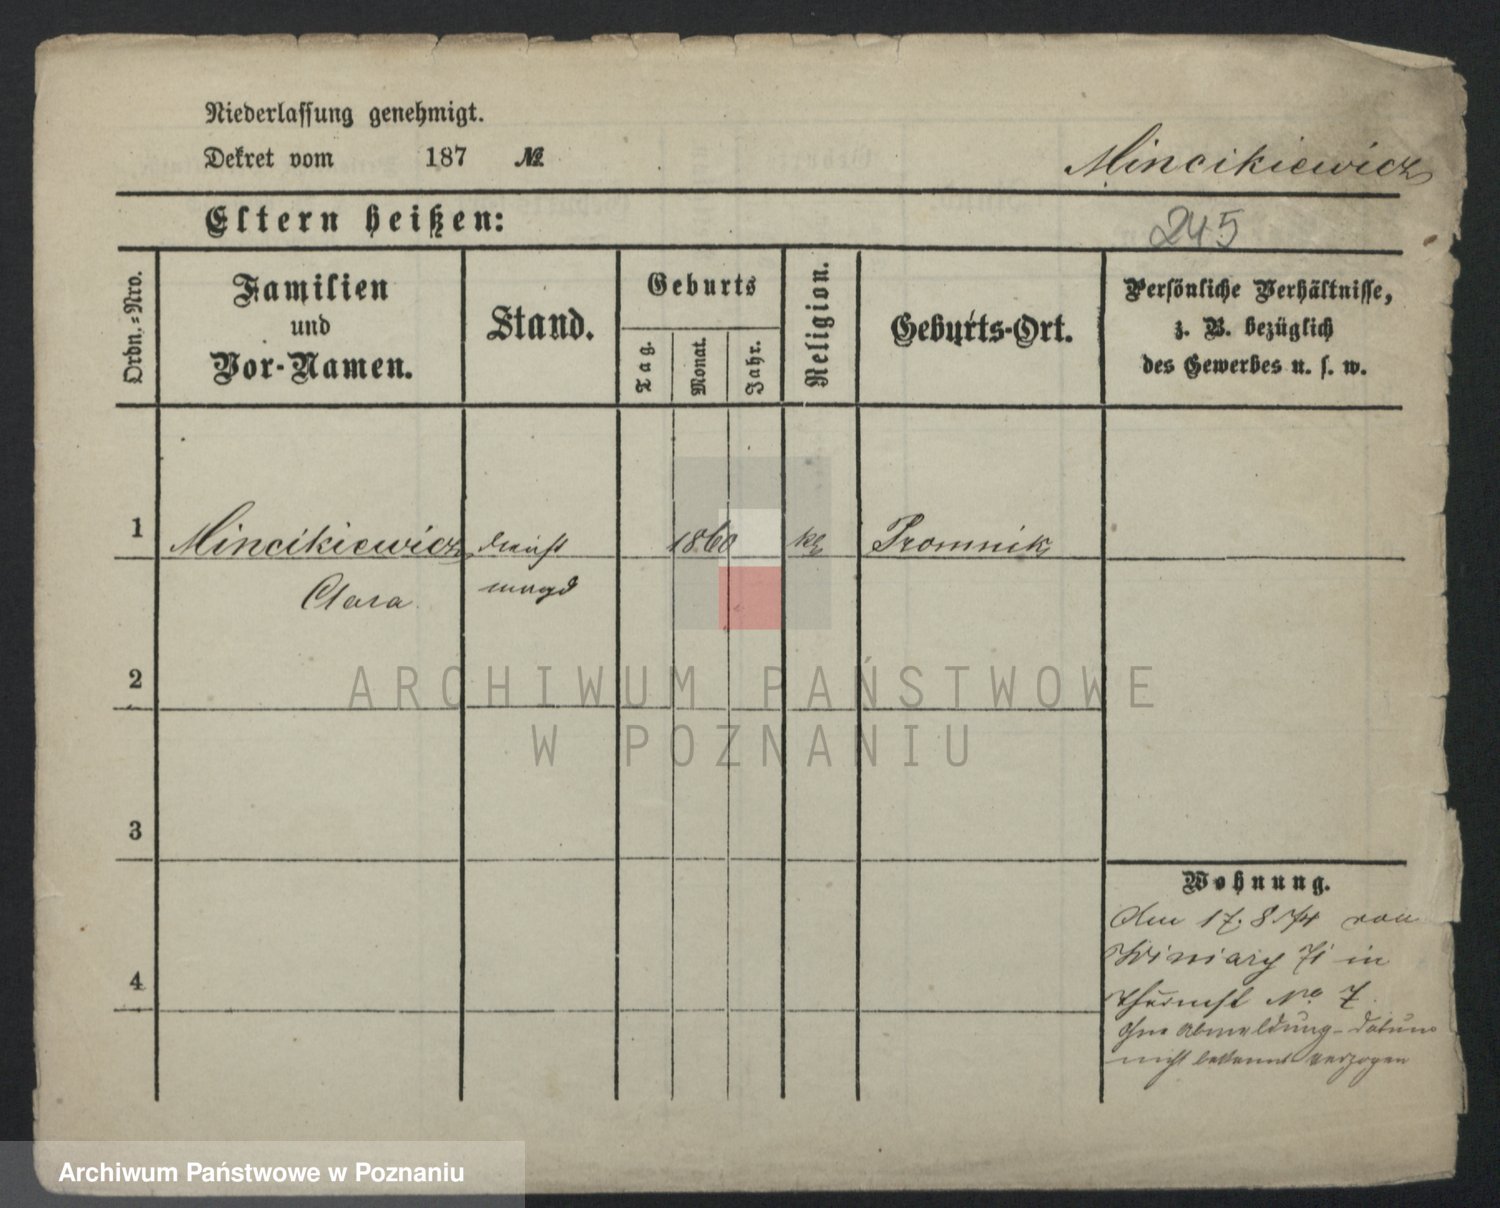 Niederlassung genehmigt.
Dekret vom 187 №
Mincikiewicz
Eltern heißen:
245
Ordn.-Nro.
Familien
und
Vor-Namen.
Stand.
Geburts
Tag.
Monat.
Jahr.
Religion.
Geburts-Ort.
Persönliche Verhältnisse,
z. B. bezüglich
des Gewerbes u. s. w.
1
Mincikiewicz
Clara
Dienst
magd
1860
Promnik
2
3
4
Wohnung.
17. 8. 74 von
Winiary 71 in
No 7.
ohne Abmeldung - Datum
nicht bekannt verzogen
ARCHIWUM PAŃSTWOWE
W POZNANIU
Archiwum Państwowe w Poznaniu